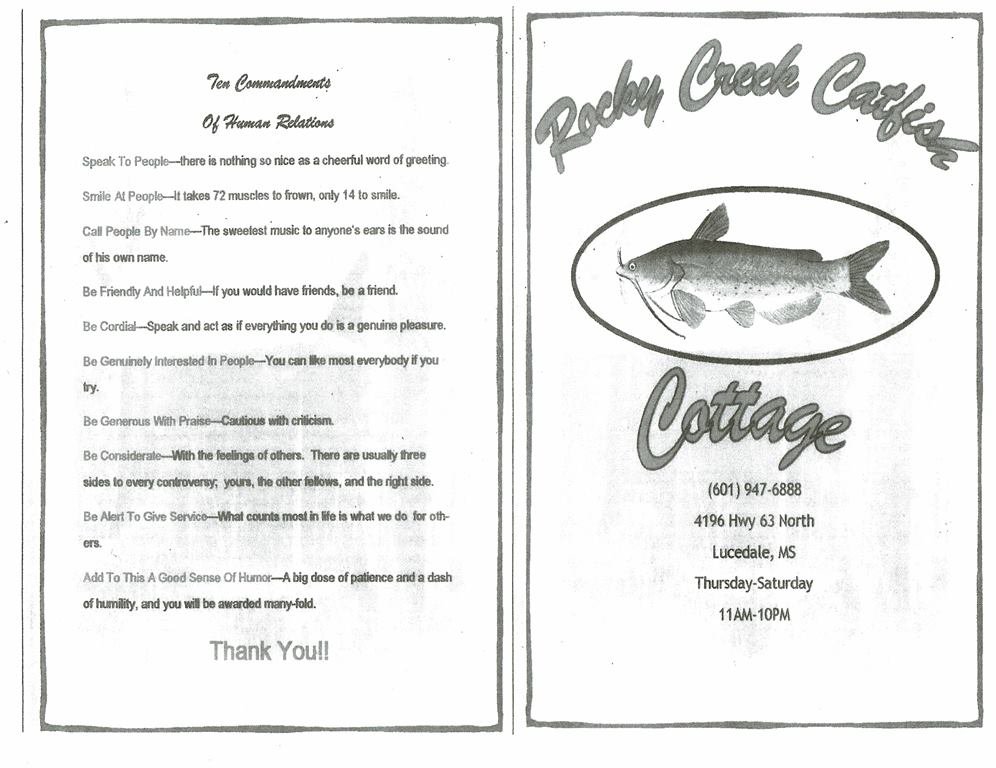 Ten Commandments
Of Human Relations
Speak To People—there is nothing so nice as a cheerful word of greeting.
Smile At People—It takes 72 muscles to frown, only 14 to smile.
Call People By Name—The sweetest music to anyone's ears is the sound
of his own name.
Be Friendly And Helpful—If you would have friends, be a friend.
Be Cordial—Speak and act as if everything you do is a genuine pleasure.
Be Genuinely Interested In People—You can like most everybody if you
try.
Be Generous With Praise—Cautious with criticism.
Be Considerate—With the feelings of others.  There are usually three
sides to every controversy;  yours, the other fellows, and the right side.
Be Alert To Give Service—What counts most in life is what we do  for oth-
ers.
Add To This A Good Sense Of Humor—A big dose of patience and a dash
of humility, and you will be awarded many-fold.
Thank You!!
Rocky Creek Catfish
Cottage
(601) 947-6888
4196 Hwy 63 North
Lucedale, MS
Thursday-Saturday
11AM-10PM